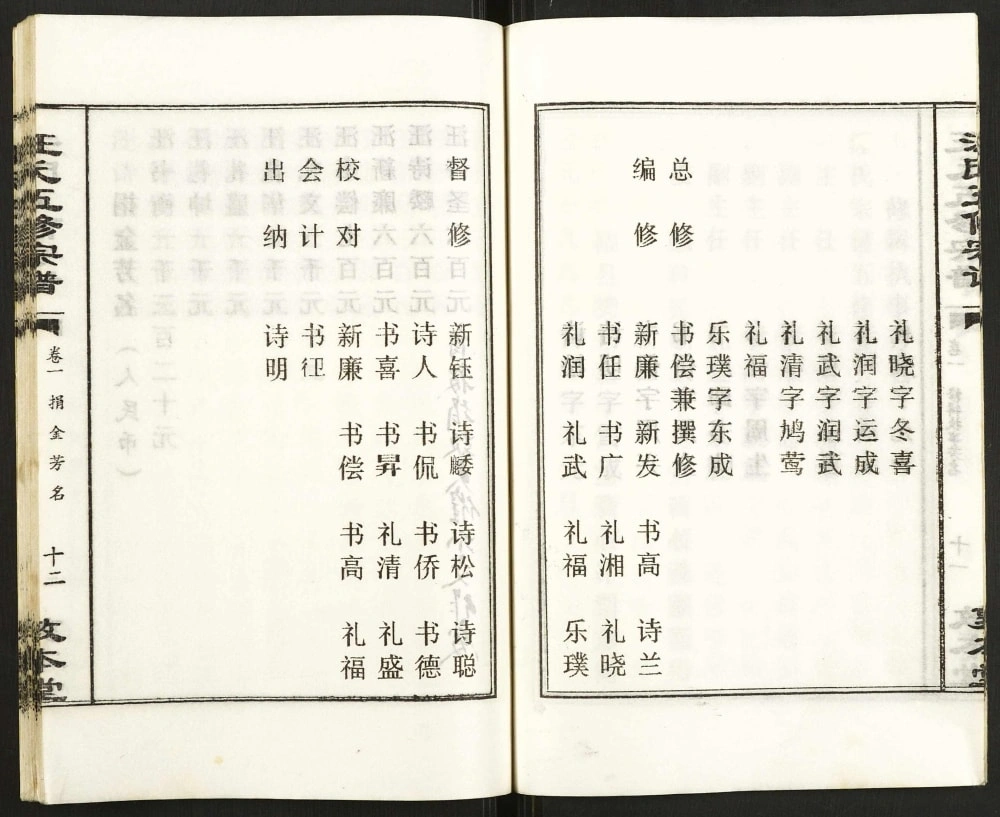 礼晓字冬喜
礼润字运成
礼武字润武
礼清字鸠莺
礼福
乐璞字东成
总修 书偿兼撰修
编修 新廉 新发 书高 诗兰
书任 书广 礼湘 礼晓
礼润 礼武 礼福 乐璞
督修 新钰 诗 诗松 诗聪
诗人 书侃 书侨 书德
书喜 书昇 礼清 礼盛
校对 新廉 书偿 书高 礼福
会计 书
出纳 诗明
汪氏五修宗谱
卷一 捐金芳名
十二
敦本堂